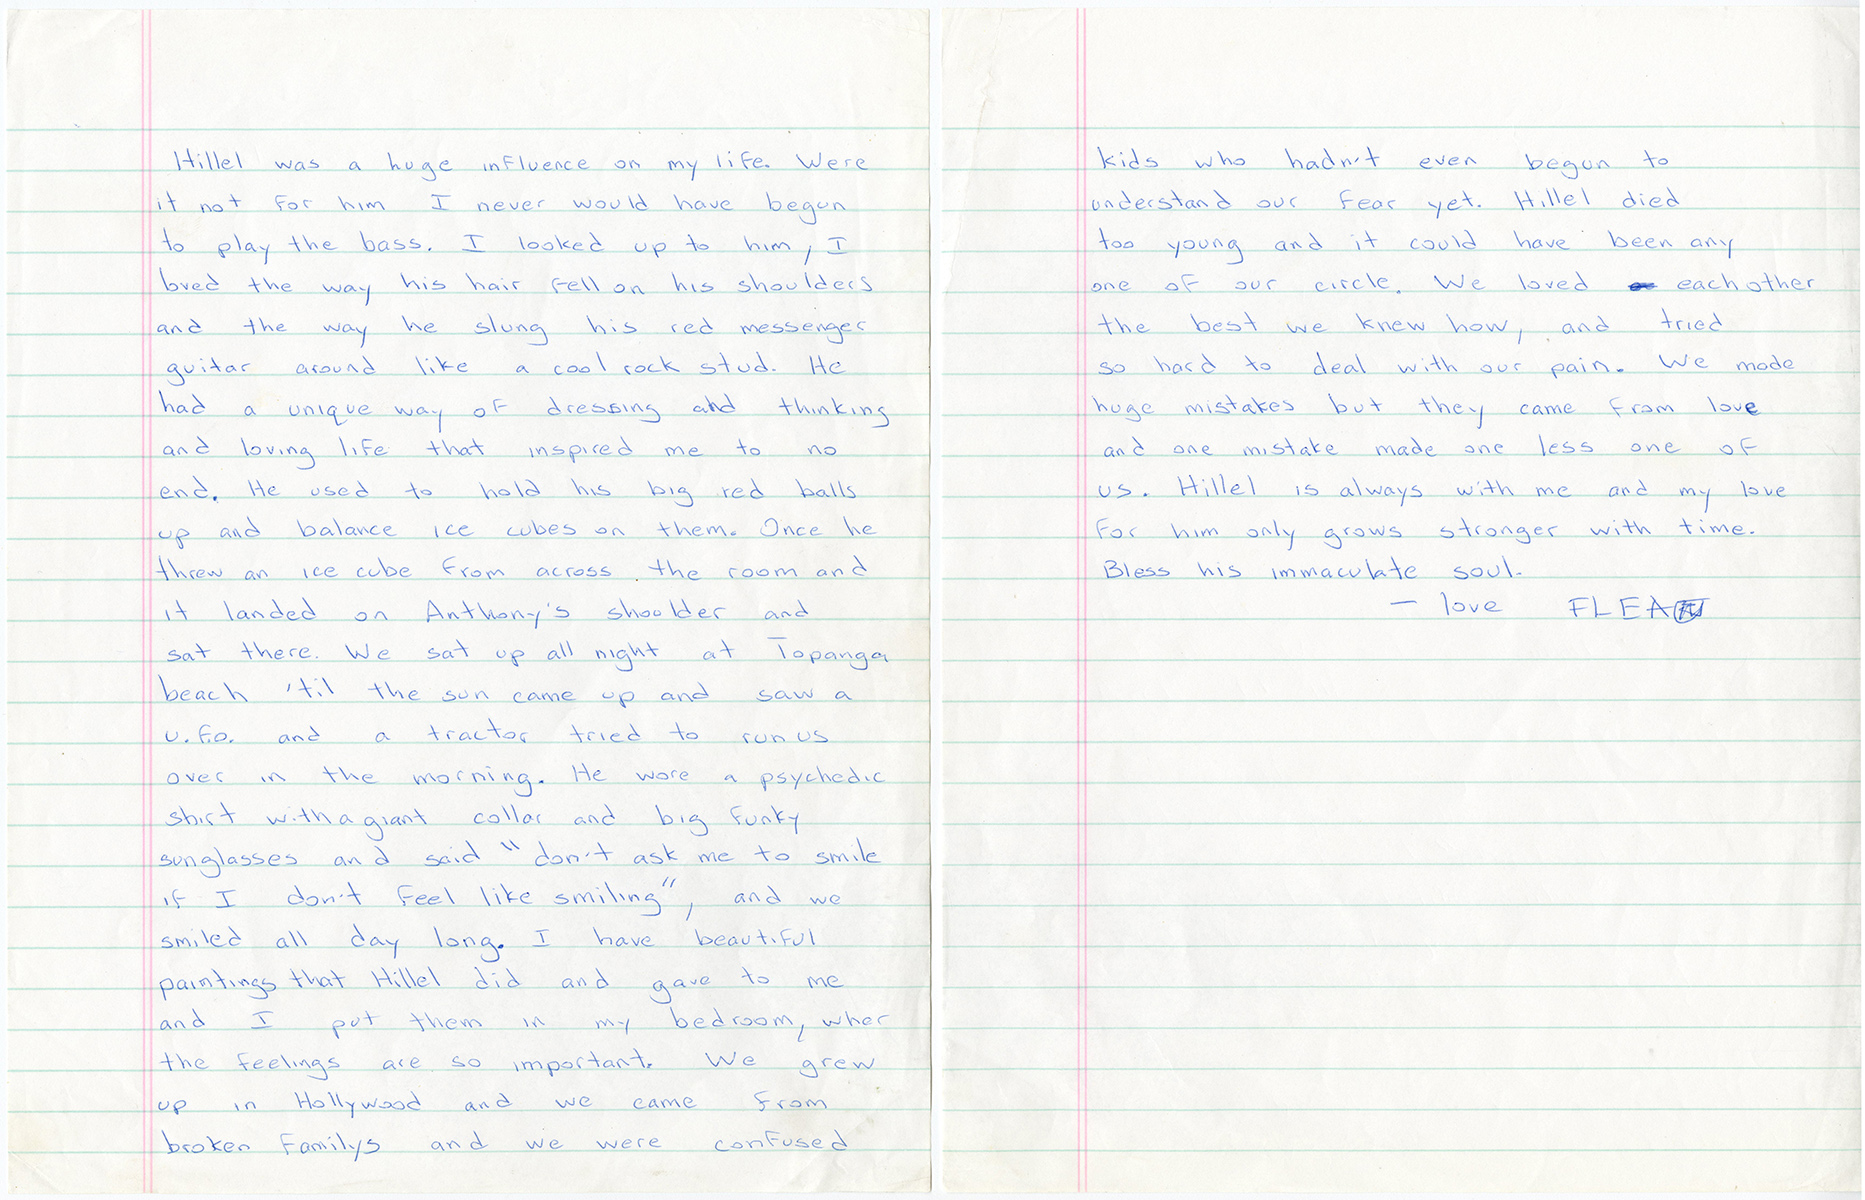 Hillel was a huge influence on my life. Were
it not for him I never would have begun
to play the bass. I looked up to him, I
loved the way his hair fell on his shoulders
and the way he slung his red messenger
guitar around like a cool rock stud. He
had a unique way of dressing and thinking
and loving life that inspired me to no
end. He used to hold his big red balls
up and balance ice cubes on them. Once he
threw an ice cube from across the room and
it landed on Anthony's shoulder and
sat there. We sat up all night at Topanga
beach 'til the sun came up and saw a
U.F.O. and a tractor tried to run us
over in the morning. He wore a psychedic
shirt with a giant collar and big funky
sunglasses and said "don't ask me to smile
if I don't feel like smiling", and we
smiled all day long. I have beautiful
paintings that Hillel did and gave to me
and I put them in my bedroom, wher
the feelings are so important. We grew
up in Hollywood and we came from
broken familys and we were confused
kids who hadn't even begun to
understand our fear yet. Hillel died
too young and it could have been any
one of our circle. We loved each other
the best we knew how, and tried
so hard to deal with our pain. We made
huge mistakes but they came from love
and one mistake made one less one of
us. Hillel is always with me and my love
for him only grows stronger with time.
Bless his immaculate soul.
— love FLEA